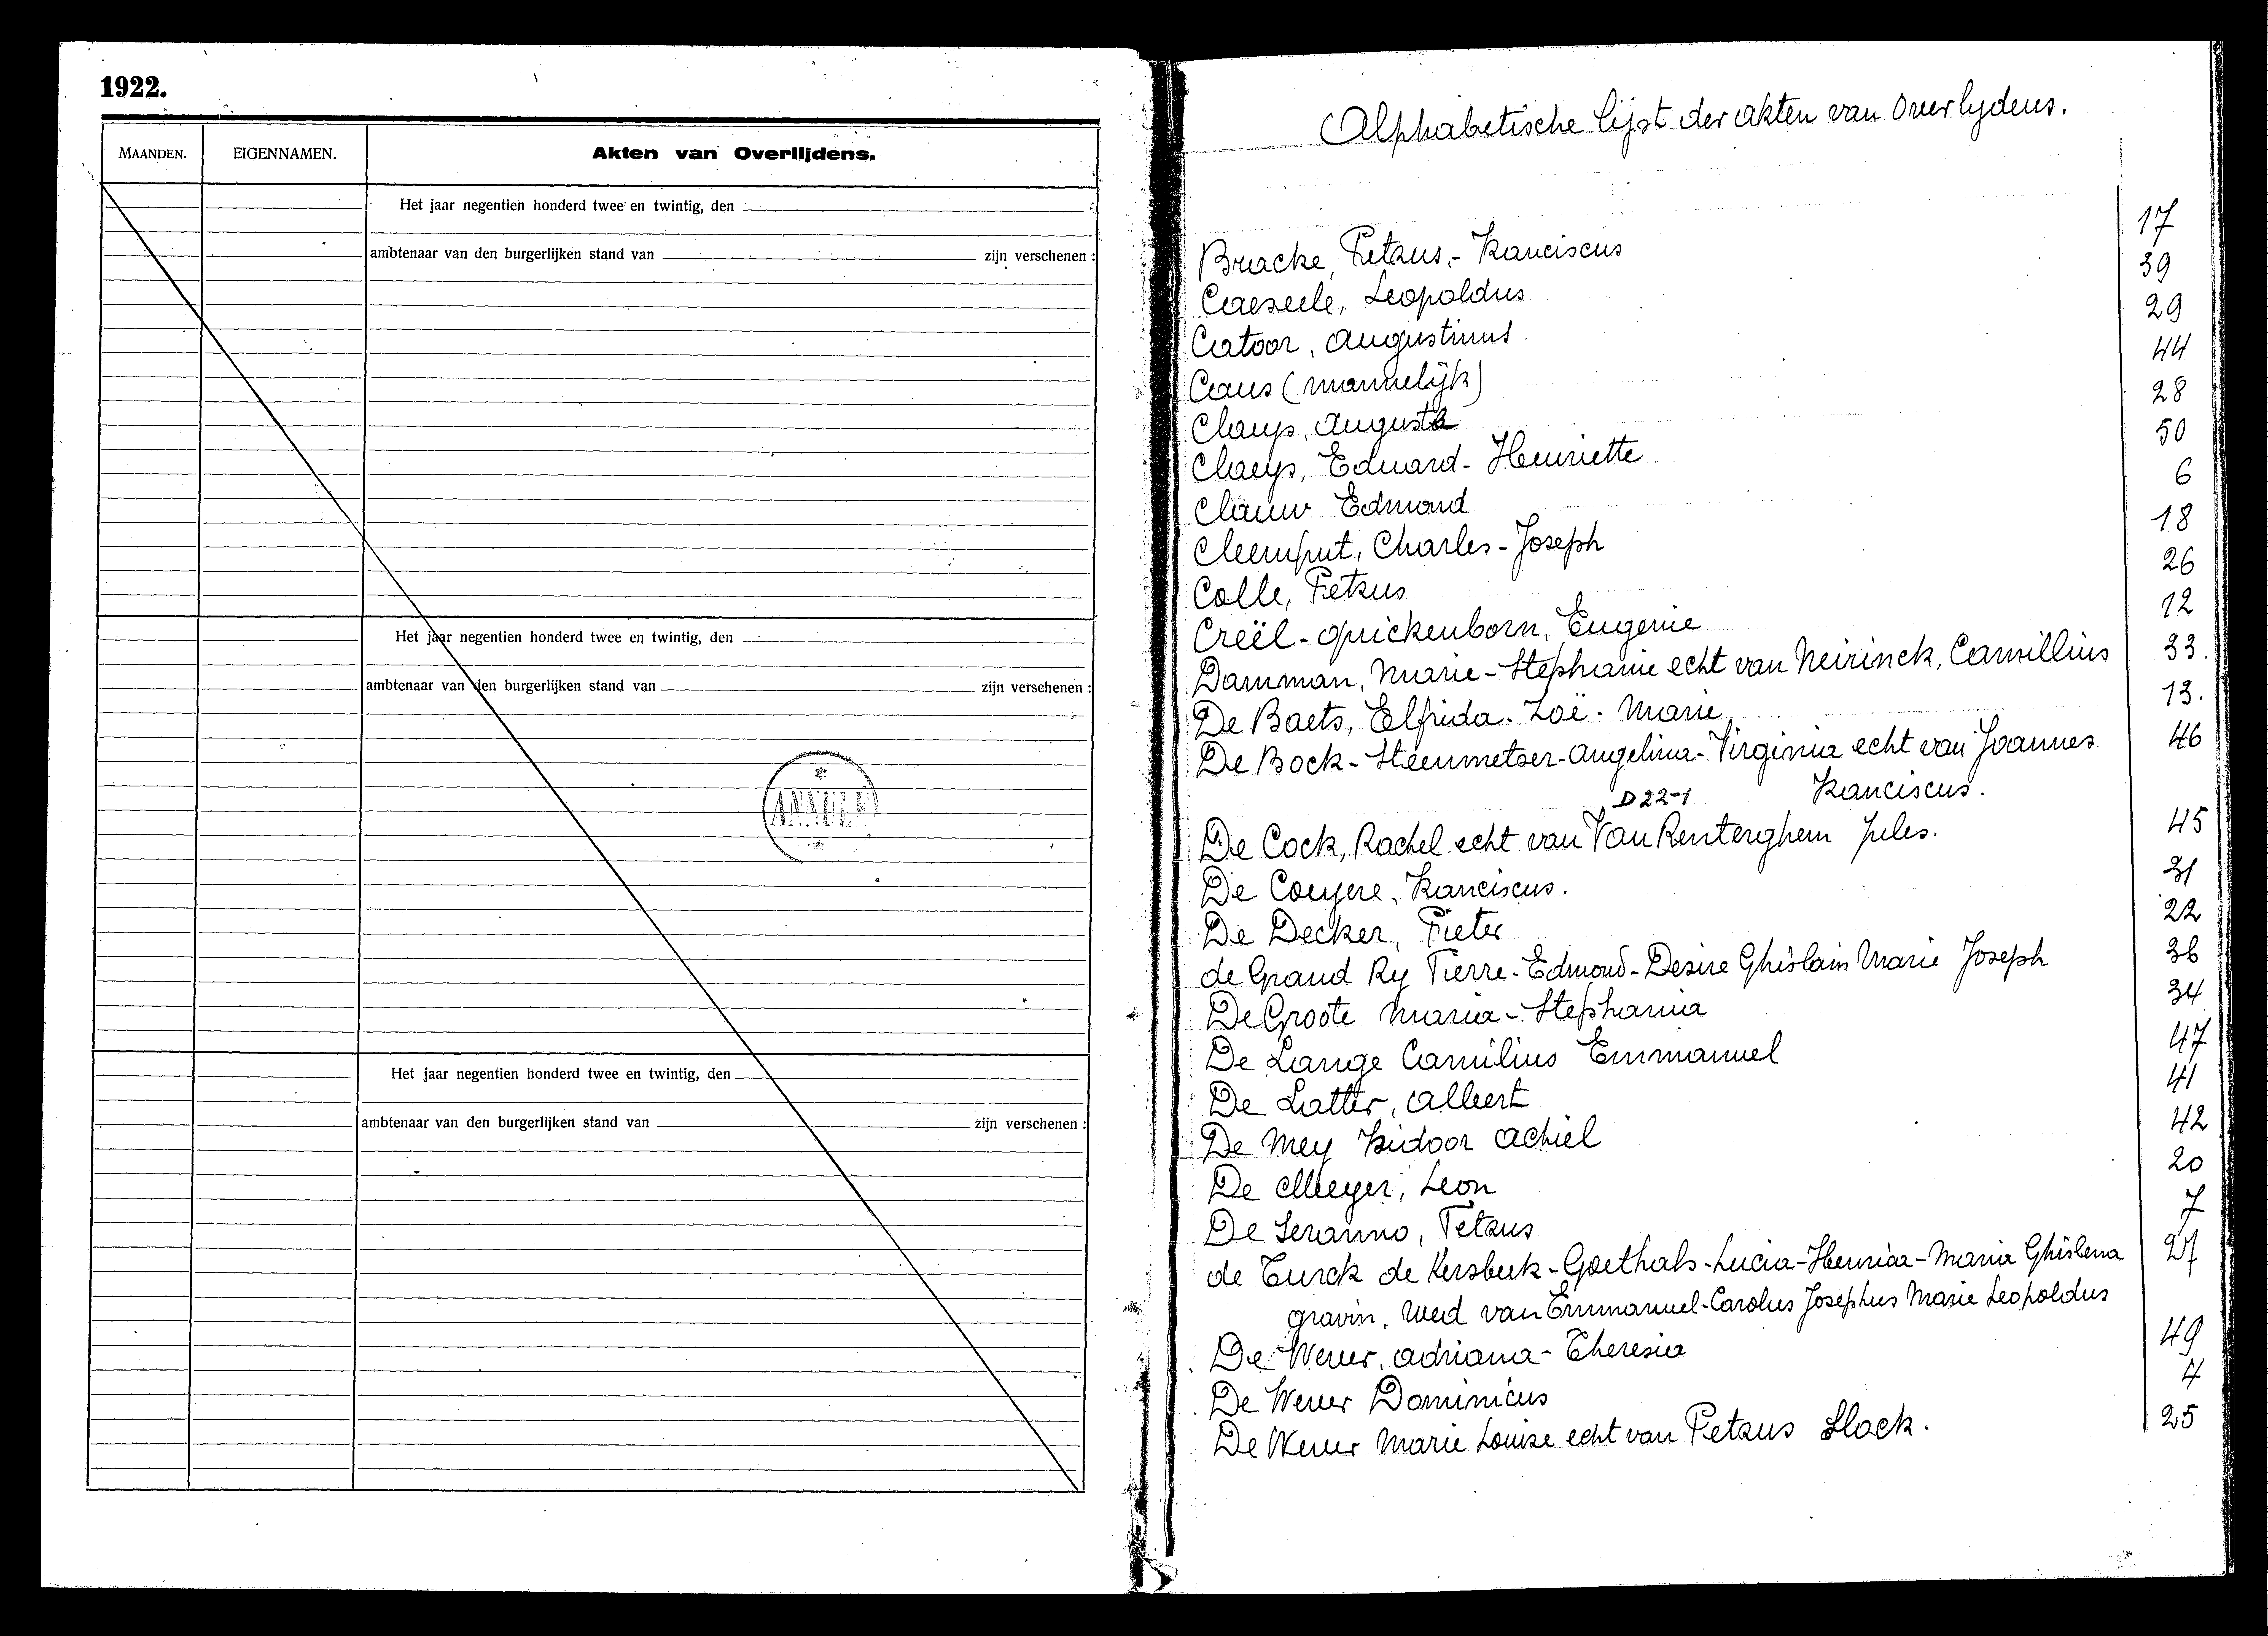 1922.
MAANDEN. EIGENNAMEN. Akten van Overlijdens.
Het jaar negentien honderd twee en twintig, den
ambtenaar van den burgerlijken stand van zijn verschenen :
Het jaar negentien honderd twee en twintig, den
ambtenaar van den burgerlijken stand van zijn verschenen :
ANNULE
Het jaar negentien honderd twee en twintig, den
ambtenaar van den burgerlijken stand van zijn verschenen :
Alphabetische lijst der akten van overlijdens.
Bracke, Petrus,- Franciscus 17
Caeseele, Leopoldus 39
Catoor, Augustinus 29
Claus (mannelijk) 44
Claeys, Augusta 28
Claeys, Eduard- Henriette 50
Clauw Edmond 6
Cleemput, Charles-Joseph 18
Colle, Petrus 26
Creël-Quickenborn, Eugenie 12
Damman, Marie-Stephanie echt van Neirinck, Camillius 33.
De Baets, Elfrida. Zoë. Marie 13.
De Bock-Steenmetser-Angelina-Virginia echt van Joannes 46
Franciscus.
D 22-1
De Cock, Rachel echt van Van Renterghem Jules. 45
De Couyere, Franciscus. 31
De Decker, Pieter 22
de Grand Ry Pierre-Edmond-Desire Ghislain Marie Joseph 36
De Groote Maria-Stephania 34
De Lange Camilius Emmanuel 47
De Latter, Albert 41
De Mey Isidoor Achiel 42
De Meyer, Leon 20
De Seranno, Petrus 7
de Turck de Kersbeek-Goethals-Lucia-Henrica-Maria Ghislena 27
gravin, wed van Emmanuel-Carolus Josephus Marie Leopoldus
De Wever, Adriana-Theresia 49
De Wever Dominicus 4
De Wever Marie Louise echt van Petrus Slock. 25